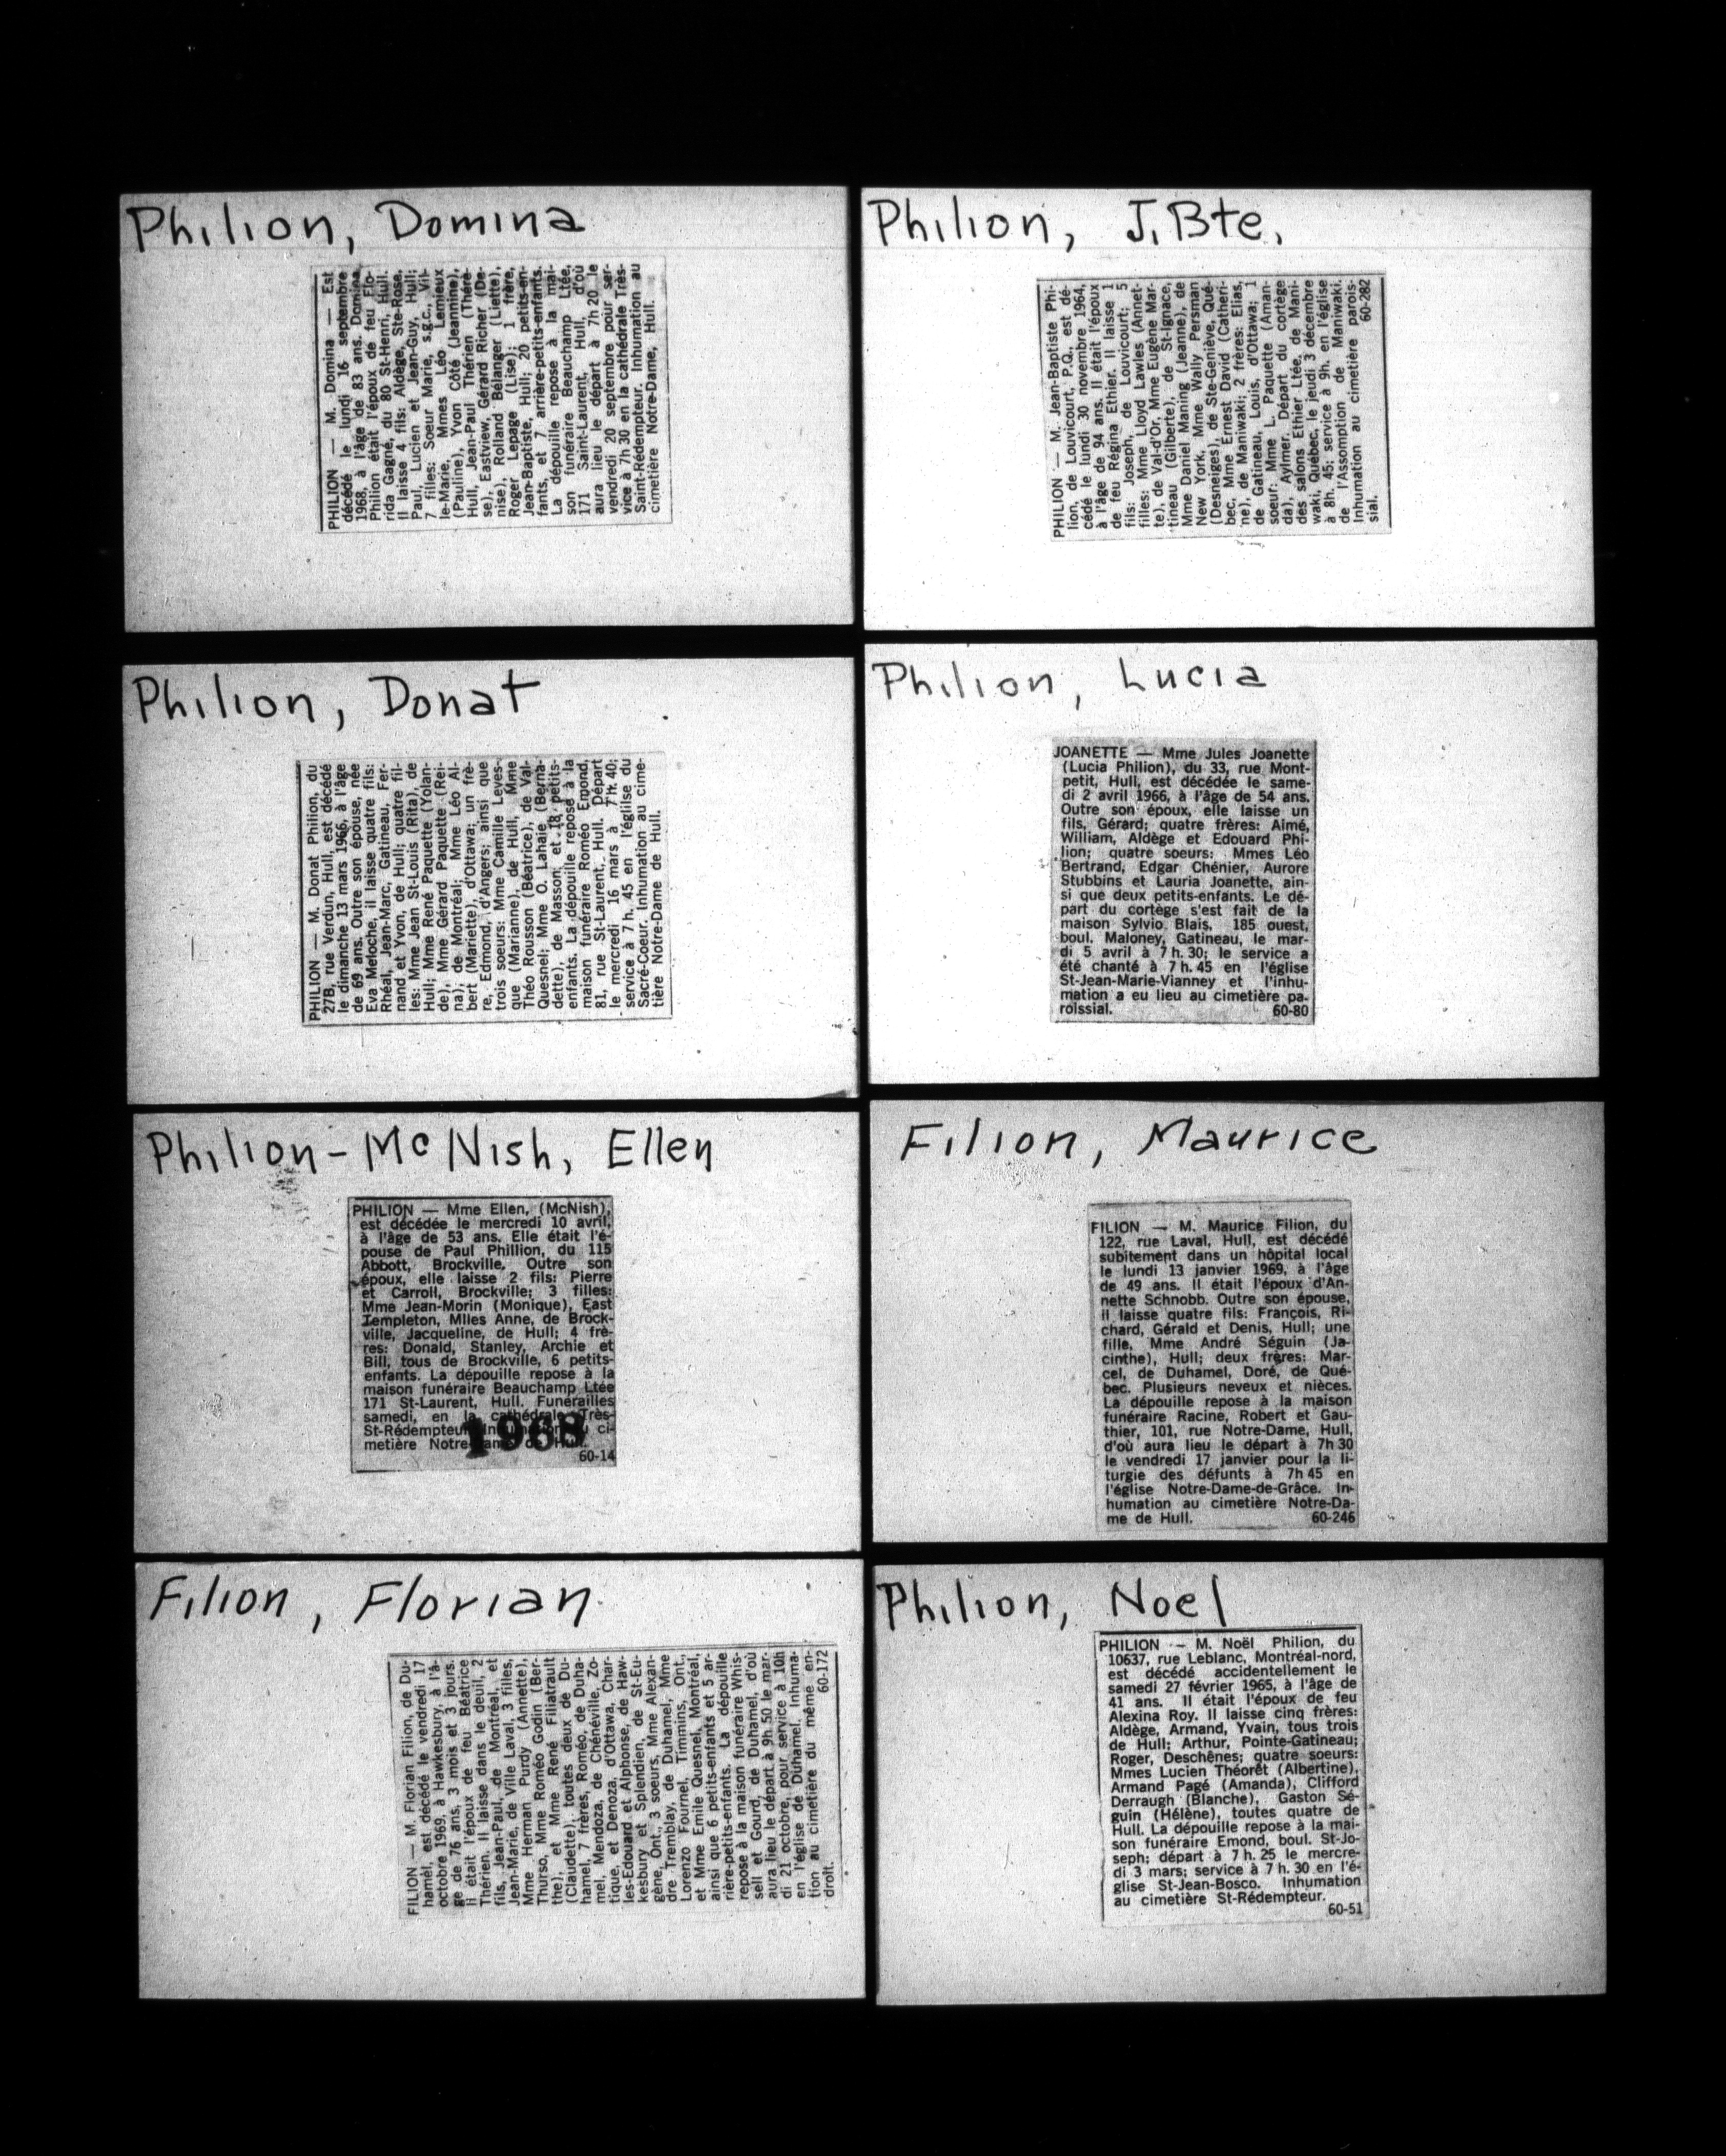 Philion, Domina
PHILION — M. Domina — Est
décédé le lundi 16 septembre
1968, à l'âge de 83 ans. Domina
Philion était l'époux de feu Flo-
rida Gagné, du 80 St-Henri, Hull.
Il laisse 4 fils: Aldège, Ste-Rose,
Paul, Lucien et Jean-Guy, Hull;
7 filles: Soeur Marie, s.g.c., Vil-
le-Marie, Mmes Léo Lemieux
(Pauline), Yvon Côté (Jeannine),
Hull, Jean-Paul Thérien (Thérè-
se), Eastview, Gérard Richer (De-
nise), Rolland Bélanger (Liette),
Roger Lepage (Lise); 1 frère,
Jean-Baptiste, Hull; 20 petits-en-
fants, et 7 arrière-petits-enfants.
La dépouille repose à la mai-
son funéraire Beauchamp Ltée,
171 Saint-Laurent, Hull, d'où
aura lieu le départ à 7h 20 le
vendredi 20 septembre pour ser-
vice à 7h 30 en la cathédrale Très-
Saint-Rédempteur. Inhumation au
cimetière Notre-Dame, Hull.
Philion, J.Bte.
PHILION — M. Jean-Baptiste Phi-
lion, de Louvicourt, P.Q., est dé-
cédé le lundi 30 novembre 1964,
à l'âge de 94 ans. Il était l'époux
de feu Régina Ethier. Il laisse 1
fils: Joseph, de Louvicourt; 5
filles: Mme Lloyd Lawles (Annet-
te), de Val-d'Or, Mme Eugène Mar-
tineau (Gilberte), de St-Ignace,
Mme Daniel Maning (Jeanne), de
New York, Mme Wally Persman
(Desneiges), de Ste-Geniève, Qué-
bec, Mme Ernest David (Catheri-
ne), de Maniwaki; 2 frères: Elias,
de Gatineau, Louis, d'Ottawa; 1
soeur: Mme L. Paquette (Aman-
da), Aylmer. Départ du cortège
des salons Ethier Ltée, de Mani-
waki, Québec, le jeudi 3 décembre
à 8h. 45; service à 9h. en l'église
de l'Assomption de Maniwaki.
Inhumation au cimetière parois-
sial. 60-282
Philion, Donat
PHILION — M. Donat Philion, du
27B, rue Verdun, Hull, est décédé
le dimanche 13 mars 1966, à l'âge
de 69 ans. Outre son épouse, née
Eva Meloche, il laisse quatre fils:
Rhéal, Jean-Marc, Gatineau, Fer-
nand et Yvon, de Hull; quatre fil-
les: Mme Jean St-Louis (Rita), de
Hull; Mme René Paquette (Yolan-
de), Mme Gérard Paquette (Rei-
na), de Montréal; Mme Léo Al-
bert (Mariette), d'Ottawa; un frè-
re, Edmond, d'Angers; ainsi que
trois soeurs: Mme Camille Leves-
que (Marianne), de Hull, Mme
Théo Rousson (Béatrice), de Val-
Quesnel; Mme O. Lahaie (Berna-
dette), de Masson; et 18 petits-
enfants. La dépouille repose à la
maison funéraire Roméo Emond,
81, rue St-Laurent, Hull. Départ
le mercredi 16 mars à 7 h. 40;
service à 7 h. 45 en l'église du
Sacré-Coeur. Inhumation au cime-
tière Notre-Dame de Hull.
Philion, Lucia
JOANETTE — Mme Jules Joanette
(Lucia Philion), du 33, rue Mont-
petit, Hull, est décédée le same-
di 2 avril 1966, à l'âge de 54 ans.
Outre son époux, elle laisse un
fils, Gérard; quatre frères: Aimé,
William, Aldège et Edouard Phi-
lion; quatre soeurs: Mmes Léo
Bertrand, Edgar Chénier, Aurore
Stubbins et Lauria Joanette, ain-
si que deux petits-enfants. Le dé-
part du cortège s'est fait de la
maison Sylvio Blais, 185 ouest,
boul. Maloney, Gatineau, le mar-
di 5 avril à 7 h. 30; le service a
été chanté à 7 h. 45 en l'église
St-Jean-Marie-Vianney et l'inhu-
mation a eu lieu au cimetière pa-
roissial. 60-80
Philion-McNish, Ellen
PHILION — Mme Ellen, (McNish),
est décédée le mercredi 10 avril,
à l'âge de 53 ans. Elle était l'é-
pouse de Paul Phillion, du 115
Abbott, Brockville. Outre son
époux, elle laisse 2 fils: Pierre
et Carroll, Brockville; 3 filles:
Mme Jean-Morin (Monique), East
Templeton, Mlles Anne, de Brock-
ville, Jacqueline, de Hull; 4 frè-
res: Donald, Stanley, Archie et
Bill, tous de Brockville, 6 petits-
enfants. La dépouille repose à la
maison funéraire Beauchamp Ltée
171 St-Laurent, Hull. Funérailles
samedi, en la cathédrale Très-
St-Rédempteur. Inhumation au ci-
metière Notre-Dame de Hull.
1968
60-14
Filion, Maurice
FILION — M. Maurice Filion, du
122, rue Laval, Hull, est décédé
subitement dans un hôpital local
le lundi 13 janvier 1969, à l'âge
de 49 ans. Il était l'époux d'An-
nette Schnobb. Outre son épouse,
il laisse quatre fils: François, Ri-
chard, Gérald et Denis, Hull; une
fille, Mme André Séguin (Ja-
cinthe), Hull; deux frères: Mar-
cel, de Duhamel, Doré, de Qué-
bec. Plusieurs neveux et nièces.
La dépouille repose à la maison
funéraire Racine, Robert et Gau-
thier, 101, rue Notre-Dame, Hull,
d'où aura lieu le départ à 7h 30
le vendredi 17 janvier pour la li-
turgie des défunts à 7h 45 en
l'église Notre-Dame-de-Grâce. In-
humation au cimetière Notre-Da-
me de Hull. 60-246
Filion, Florian
FILION — M. Florian Filion, de Du-
hamel, est décédé le vendredi 17
octobre 1969, à Hawkesbury, à l'â-
ge de 76 ans, 3 mois et 3 jours.
Il était l'époux de feu Béatrice
Thérien. Il laisse dans le deuil, 2
fils, Jean-Paul, de Montréal, et
Jean-Marie, de Ville Laval, 3 filles,
Mme Herman Purdy (Annette),
Thurso, Mme Roméo Godin (Ber-
the), et Mme René Filiatrault
(Claudette), toutes deux de Du-
hamel, 7 frères, Roméo, de Duha-
mel, Mendoza, de Chénéville, Zo-
tique, et Denoza, d'Ottawa, Char-
les-Edouard et Alphonse, de Haw-
kesbury et Splendien, de St-Eu-
gène, Ont., 3 soeurs, Mme Alexan-
dre Tremblay, de Duhamel, Mme
Lorenzo Fournel, Timmins, Ont.,
et Mme Emile Quesnel, Montréal,
ainsi que 6 petits-enfants et 5 ar-
rière-petits-enfants. La dépouille
repose à la maison funéraire Whis-
sell et Gourd, de Duhamel, d'où
aura lieu le départ à 9h 50 le mar-
di 21 octobre, pour service à 10h
en l'église de Duhamel. Inhuma-
tion au cimetière du même en-
droit. 60-172
Philion, Noel
PHILION — M. Noël Philion, du
10637, rue Leblanc, Montréal-nord,
est décédé accidentellement le
samedi 27 février 1965, à l'âge de
41 ans. Il était l'époux de feu
Alexina Roy. Il laisse cinq frères:
Aldège, Armand, Yvain, tous trois
de Hull; Arthur, Pointe-Gatineau;
Roger, Deschênes; quatre soeurs:
Mmes Lucien Théorêt (Albertine),
Armand Pagé (Amanda), Clifford
Derraugh (Blanche), Gaston Sé-
guin (Hélène), toutes quatre de
Hull. La dépouille repose à la mai-
son funéraire Emond, boul. St-Jo-
seph; départ à 7 h. 25 le mercre-
di 3 mars; service à 7 h. 30 en l'é-
glise St-Jean-Bosco. Inhumation
au cimetière St-Rédempteur.
60-51